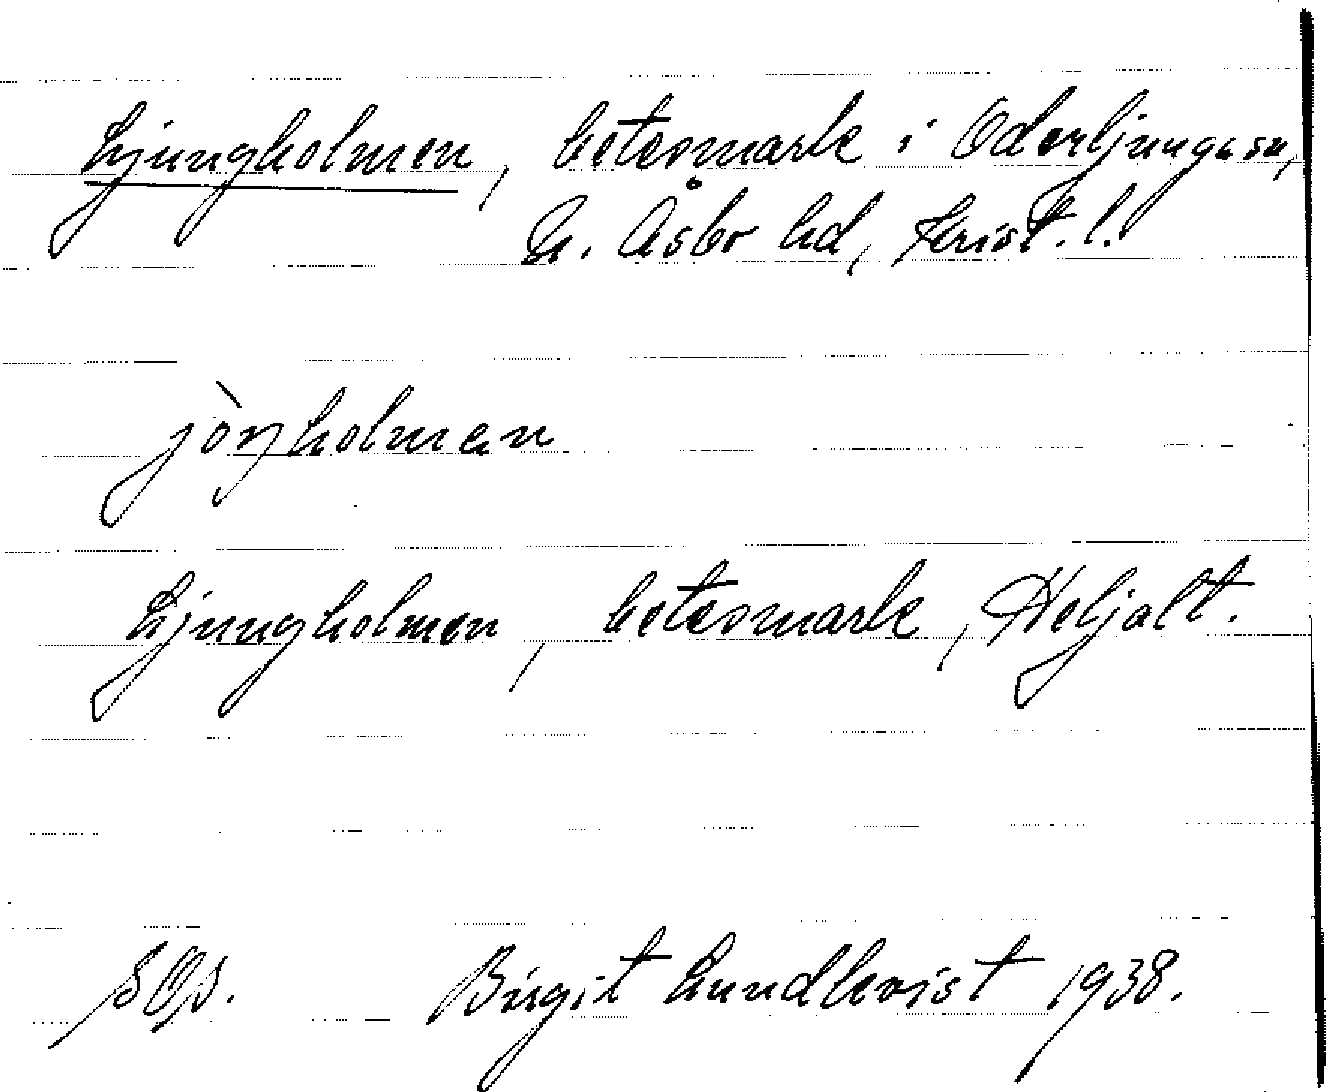 Ljungholmen, betesmark i Oderljunga sn,
N. Åsbo hd, Krist. l.
jòŋholmen
Ljungholmen, betesmark, Heljalt.
Birgit Lundkvist 1938.